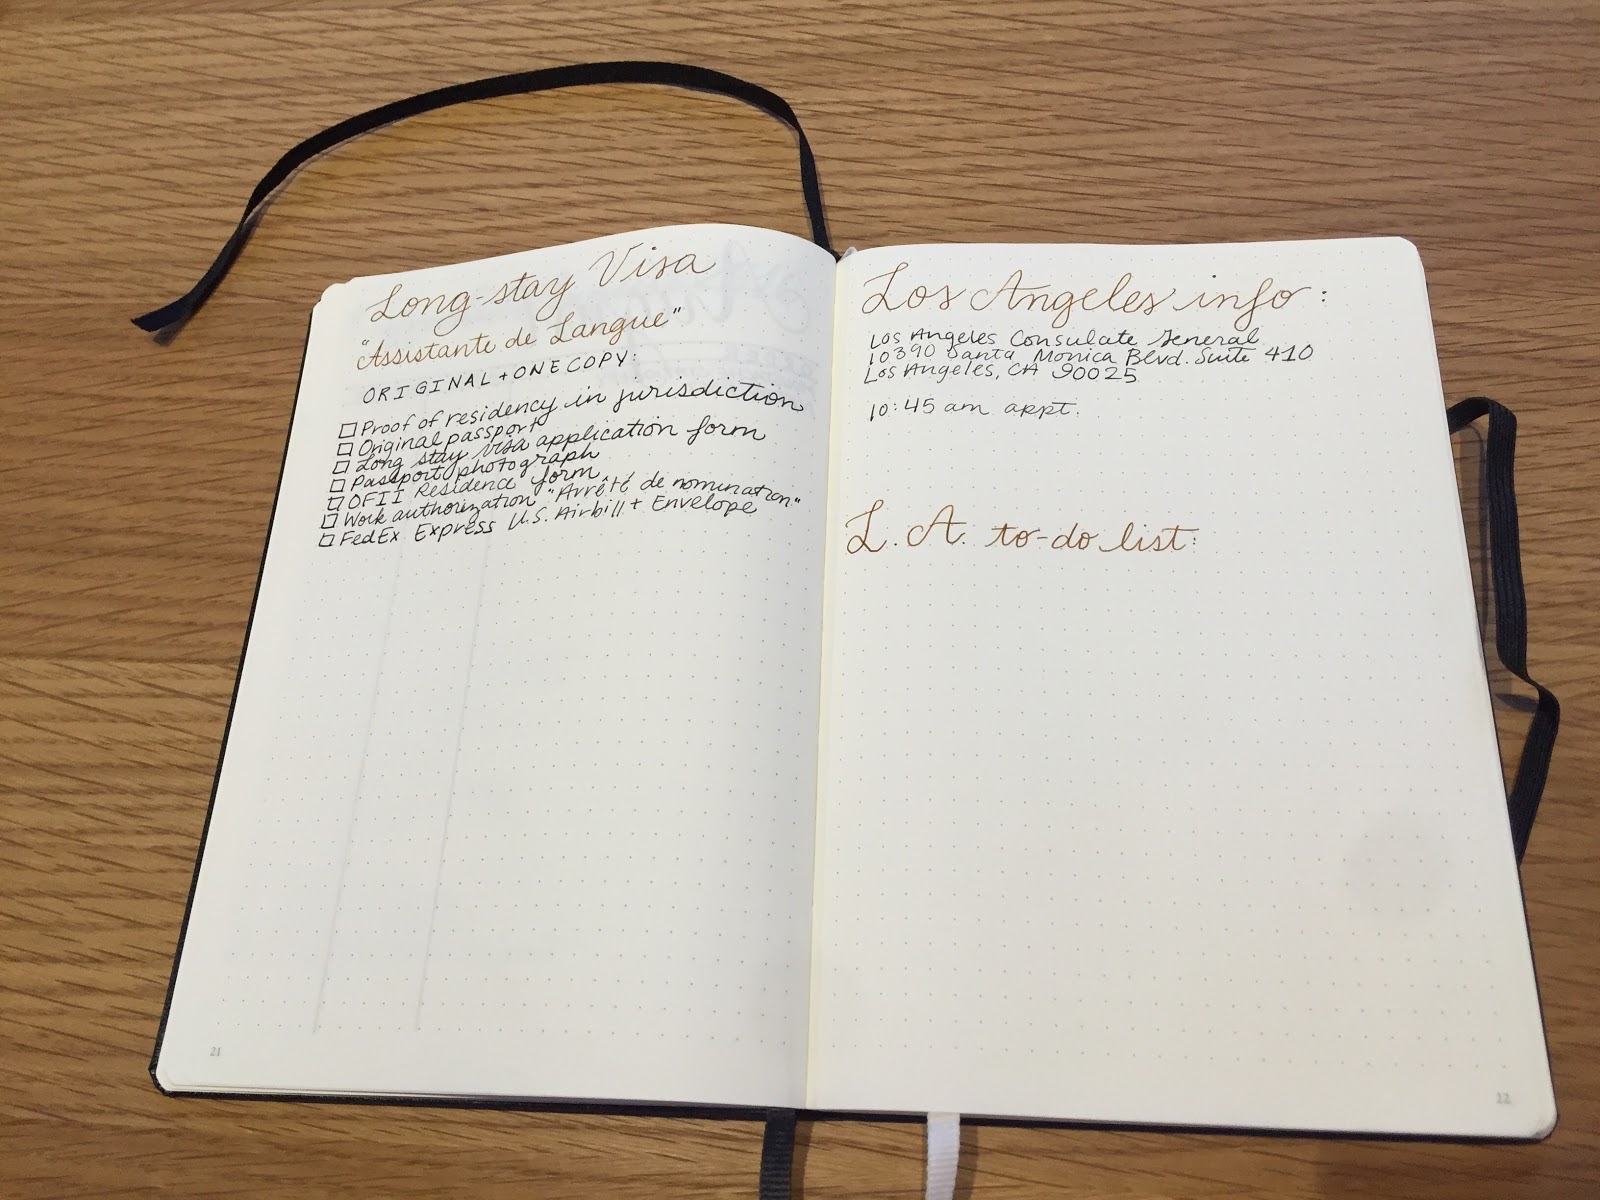 Long-stay Visa
"Assistante de Langue"
ORIGINAL + ONE COPY:
Proof of residency in jurisdiction
Original passport
Long stay visa application form
Passport photograph
OFII Residence form
Work authorization "Arrêté de nomination"
FedEx Express U.S. Airbill + Envelope
21
Los Angeles info:
Los Angeles Consulate General
10390 Santa Monica Blvd. Suite 410
Los Angeles, CA 90025
10:45 am appt.
L.A. to-do list:
22